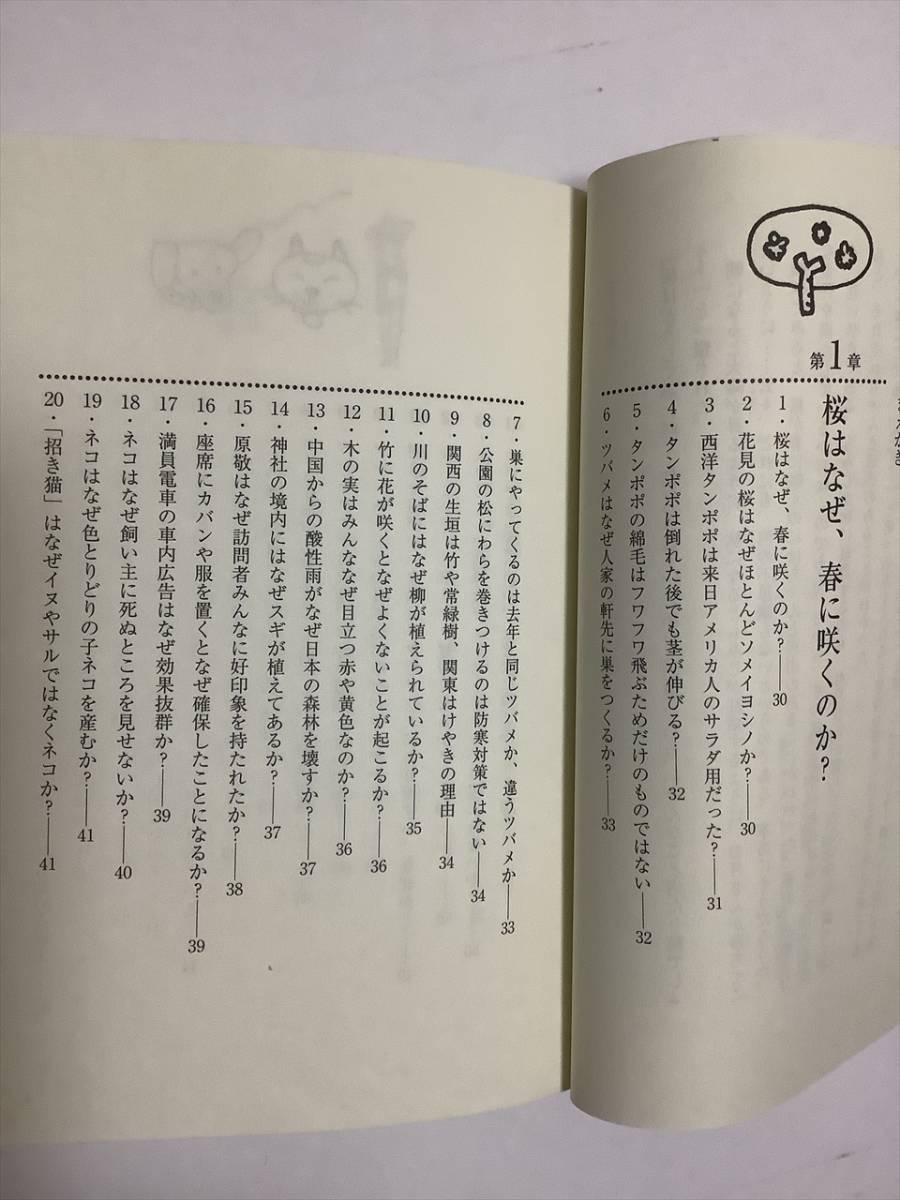 まえがき
第1章
桜はなぜ、春に咲くのか?
1・桜はなぜ、春に咲くのか?——30
2・花見の桜はなぜほとんどソメイヨシノか?——30
3・西洋タンポポは来日アメリカ人のサラダ用だった?——31
4・タンポポは倒れた後でも茎が伸びる?——32
5・タンポポの綿毛はフワフワ飛ぶためだけのものではない——32
6・ツバメはなぜ人家の軒先に巣をつくるか?——33
7・巣にやってくるのは去年と同じツバメか、違うツバメか——33
8・公園の松にわらを巻きつけるのは防寒対策ではない——34
9・関西の生垣は竹や常緑樹、関東はけやきの理由——34
10・川のそばにはなぜ柳が植えられているか?——35
11・竹に花が咲くとなぜよくないことが起こるか?——36
12・木の実はみんななぜ目立つ赤や黄色なのか?——36
13・中国からの酸性雨がなぜ日本の森林を壊すか?——37
14・神社の境内にはなぜスギが植えてあるか?——37
15・原敬はなぜ訪問者みんなに好印象を持たれたか?——38
16・座席にカバンや服を置くとなぜ確保したことになるか?——39
17・満員電車の車内広告はなぜ効果抜群か?——39
18・ネコはなぜ飼い主に死ぬところを見せないか?——40
19・ネコはなぜ色とりどりの子ネコを産むか?——41
20・「招き猫」はなぜイヌやサルではなくネコか?——41